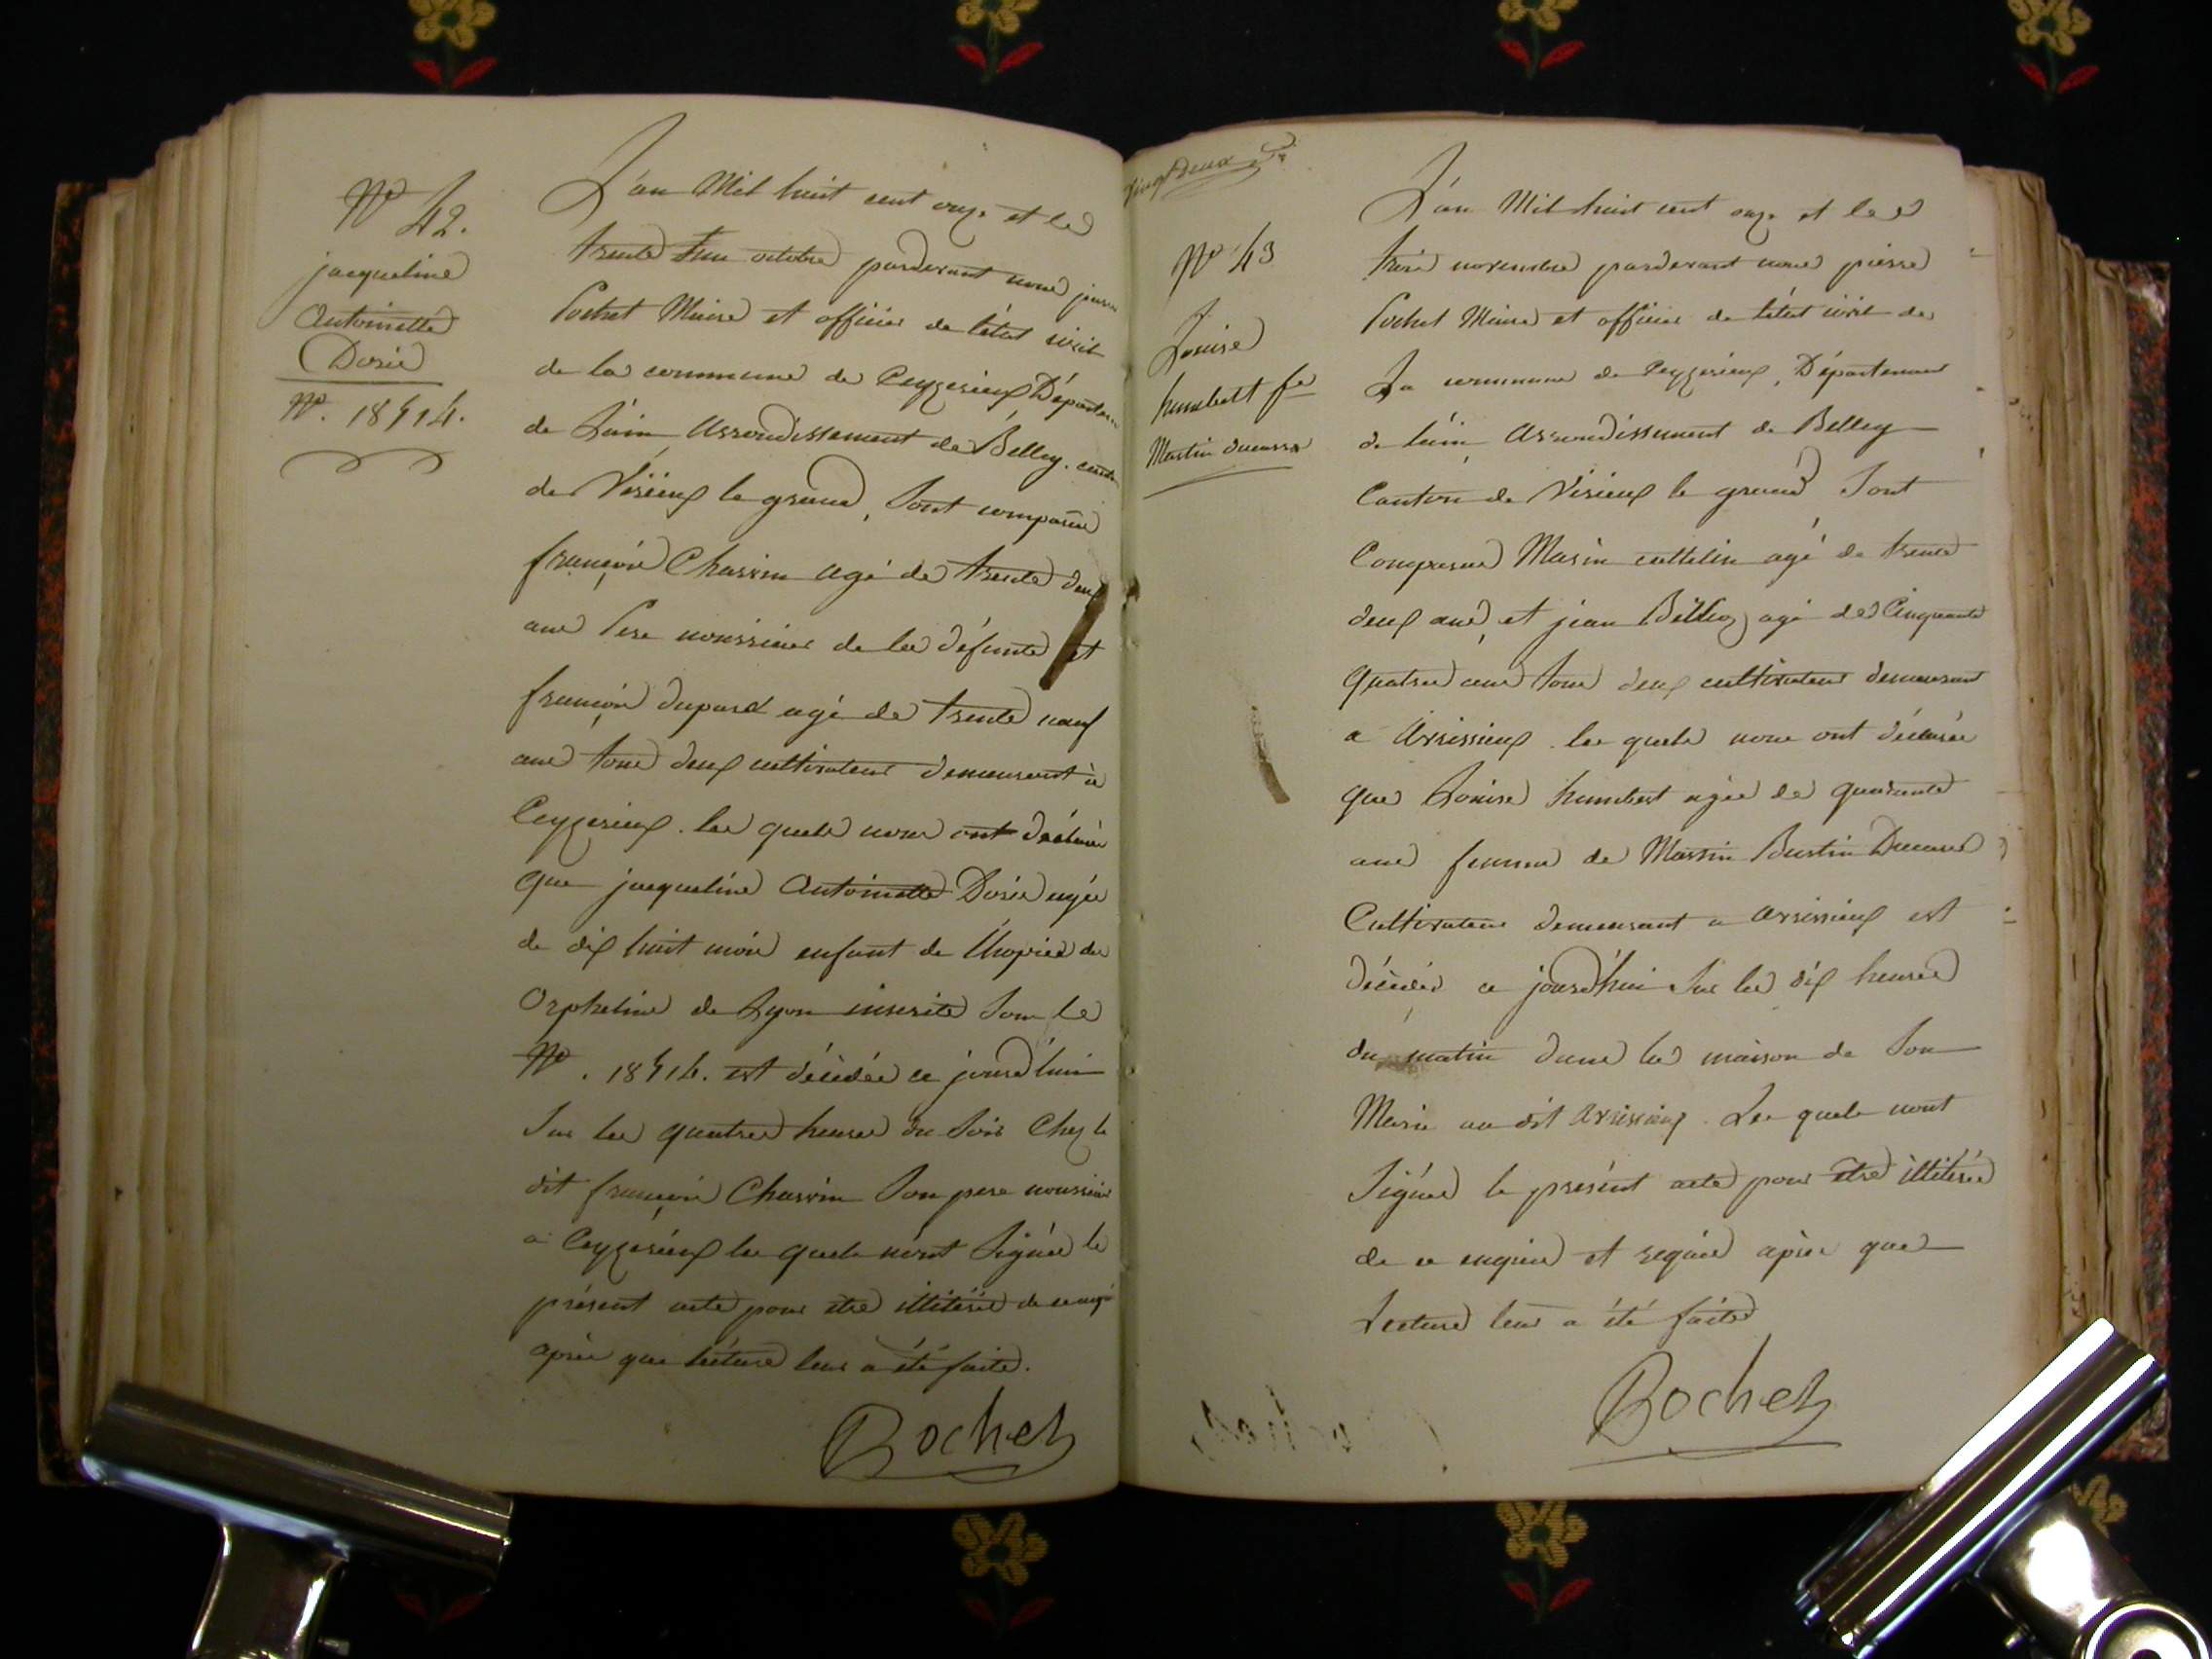 N° 42.
jacqueline
Antoinette
Dorie
N°. 18414.
L'an Mil huit cent onze et le
trente un octobre pardevant nous pierre
Pochet Maire et officier de l'état civil
de la commune de Ceyzerieux Départem
de L'ain Arrondissement de Belley. canton
de Virieux le grand, Sont comparus
françois Charvin agé de trente deux
ans Pere nourricier de la défunte et
françois dupard agé de trente neuf
ans tous deux cultivateurs demeurant à
Ceyzerieux. les quels nous ont déclarés
que jacqueline Antoinette Dorie agée
de dix huit mois enfant de l'hopice des
Orpheline de Lyon inscrite Sous le
N°. 18414. est décédée ce jourd'hui
Sur les quatres heures du Soir Chez le
dit françois Charvin Son pere nourricier
a Ceyzerieux les quels n'ont Signés le
présent acte pour etre illiterés de ce
après que lecture leur a été faite.
Bochet
Vingt Deux
N° 43
Louise
humbert fe
Martin ducarre
L'an Mil huit cent onze et le
trois novembre pardevant nous pierre
Pochet Maire et officier de l'état civil de
La commune de Ceyzerieux, Département
de l'ain, Arrondissement de Belley
Canton de Virieux le grand Sont
Comparus Marin cuttelin agé de trente
deux ans, et jean Billioz agé de Cinquante
quatres ans tous deux cultivateurs demeurant
a Avrissieux. les quels nous ont déclarés
que Louise humbert agée de quarante
ans femme de Martin Ducarre
Cultivateur demeurant a avrissieux est
décédée ce jourd'hui Sur les dix heures
du matin dans la maison de Son
Marie au dit avrissieux. Les quels n'ont
Signés le présent acte pour etre illiterés
de ce enquis et requis après que
Lecture leur a été faite
Bochet